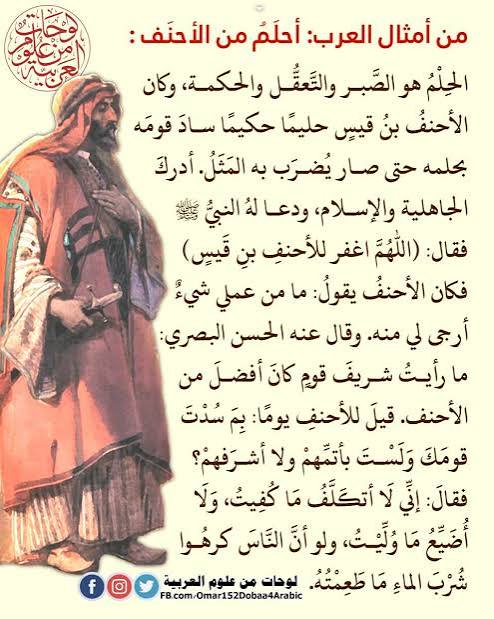 لوحات من علوم العربية
من أمثال العرب: أحلَمُ من الأحنَف :
الحِلْمُ هو الصَّبر والتَّعقُّل والحكمة، وكان
الأحنفُ بنُ قيسٍ حليمًا حكيمًا سادَ قومَه
بحلمه حتى صار يُضرَب به المَثَلُ. أدركَ
الجاهلية والإسلام، ودعا لهُ النبيُّ ﷺ
فقال: (اللهُمَّ اغفر للأحنفِ بنِ قَيسٍ)
فكان الأحنفُ يقولُ: ما من عملي شيءٌ
أرجى لي منه. وقال عنه الحسن البصري:
ما رأيتُ شريفَ قومٍ كانَ أفضلَ من
الأحنف. قيلَ للأحنفِ يومًا: بِمَ سُدْتَ
قومَكَ وَلَسْتَ بأتمِّهمْ ولا أشرَفهمْ؟
فقالَ: إنِّي لَا أتكَلَّفُ مَا كُفِيتُ، وَلَا
أُضَيِّعُ مَا وُلِّيْتُ، ولو أنَّ النَّاسَ كرهُوا
شُرْبَ الماءِ مَا طَعِمْتُهُ.
لوحات من علوم العربية
FB.com/Omar152Dobaa4Arabic